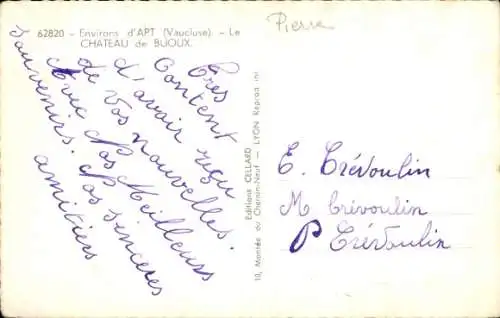 62820 - Environs d'APT (Vaucluse). - Le
CHATEAU de BUOUX.
Pierre
Très
Content
d'avoir reçu
de vos nouvelles.
Avec Nos Meilleurs
souvenirs. Nos sincères
amitiers
Editions CELLARD
10, Montée du Chemin-Neuf - LYON Reprod. int.
E. Trévoulin
M Crévoulin
P Trévoulin